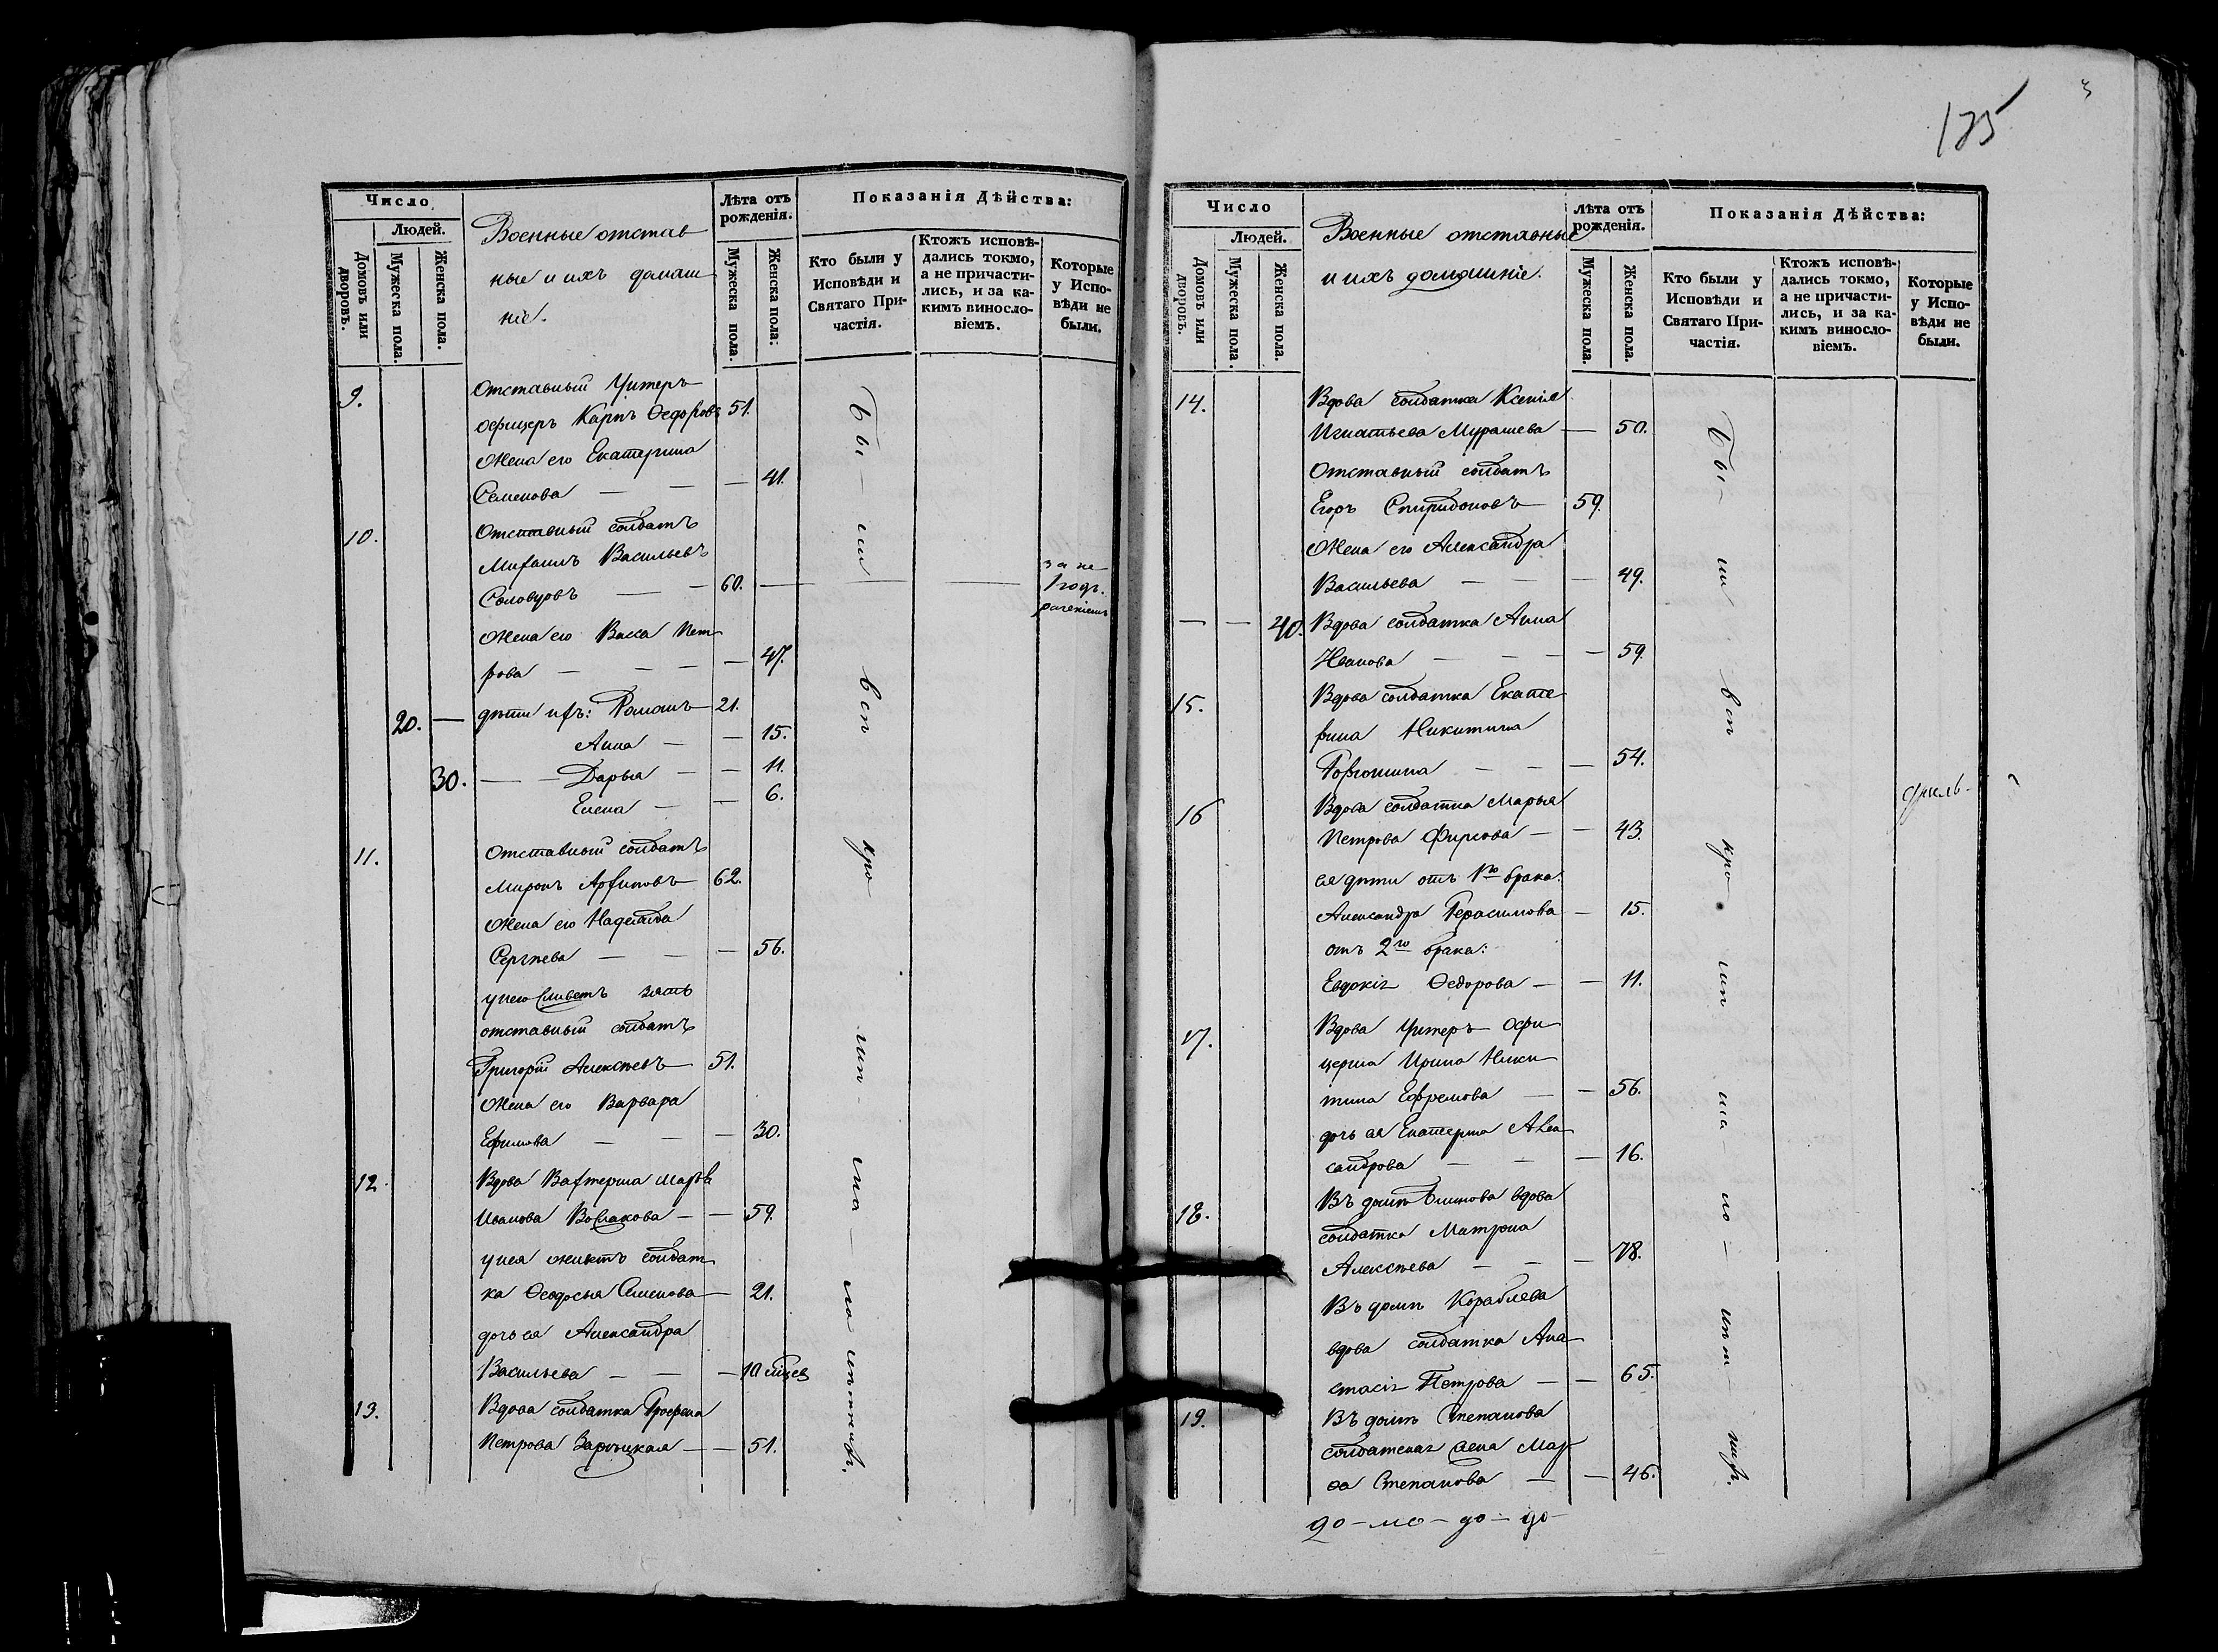 Число
Людей.
Домовъ или дворовъ.
Мужеска пола.
Женска пола.
Военные отстав
ные и ихъ домаш
ніе.
Лѣта отъ рожденія.
Мужеска пола.
Женска пола:
Показанія Дѣйства:
Кто были у Исповѣди и Святаго Причастія.
Ктожъ исповѣдались токмо, а не причастились, и за какимъ винословіемъ.
Которые у Исповѣди не были.
9. Отставный Унтеръ
офицеръ Карпъ Ѳедоровъ 51.
Жена его Екатерина
Семенова — — — 41.
10. Отставный солдатъ
Михаилъ Васильевъ
Соловцовъ — — 60. — — — 1 годъ.
за не
раченіемъ
Жена его Васса Пет
рова — — — — 47.
20. — дѣти ихъ: Романъ 21.
Анна — — 15.
30. — — Дарья — — 11.
Елена — — 6.
11. Отставный солдатъ
Миронъ Архиповъ 62.
Жена его Надежда
Сергѣева — — — 56.
у него живетъ зять
отставный солдатъ
Григорій Алексѣевъ 51.
Жена его Варвара
Ефимова — — — 30.
12. Вдова Вахтерша Марья
Иванова — — 59.
у нея живетъ солдат
ка Ѳеодосья Семенова — 21.
дочь ея Александра
Васильева — — — 10 мѣцев
13. Вдова солдатка
Петрова Зарѣцкая — — 51.
Бы — ли всѣ кро
125
Число
Людей.
Домовъ или дворовъ.
Мужеска пола.
Женска пола.
Военные отставные
и ихъ домашніе.
Лѣта отъ рожденія.
Мужеска пола.
Женска пола.
Показанія Дѣйства:
Кто были у Исповѣди и Святаго Причастія.
Ктожъ исповѣдались токмо, а не причастились, и за какимъ винословіемъ.
Которые у Исповѣди не были.
14. Вдова солдатка Ксенія
Игнатьева Мурашева — 50.
Отставный солдатъ
Егоръ Спиридоновъ 59.
Жена его Александра
Васильева — — — 49.
— — 40. Вдова солдатка Анна
Иванова — — — — 59.
15. Вдова солдатка Екате
рина Никитина
— — — 54.
16 Вдова солдатка Марья
Петрова Фирсова — — 43.
ея дѣти отъ 1го брака:
Александра Герасимова — 15.
отъ 2го брака:
Евдокія Ѳедорова — — 11.
17. Вдова Унтеръ Офи
церша Ирина Ники
тина Ефремова — — 56.
дочь ея Екатерина Алек
сандрова — — — 16.
18. Въ домѣ вдова
солдатка Матрона
Алексѣева — — — 78.
Въ домѣ Кораблева
вдова солдатка Ана
стасія Петрова — — 65.
19. Въ домѣ Степанова
солдатская жена Мар
ѳа Степанова — — 46.
Бы — ли всѣ кро